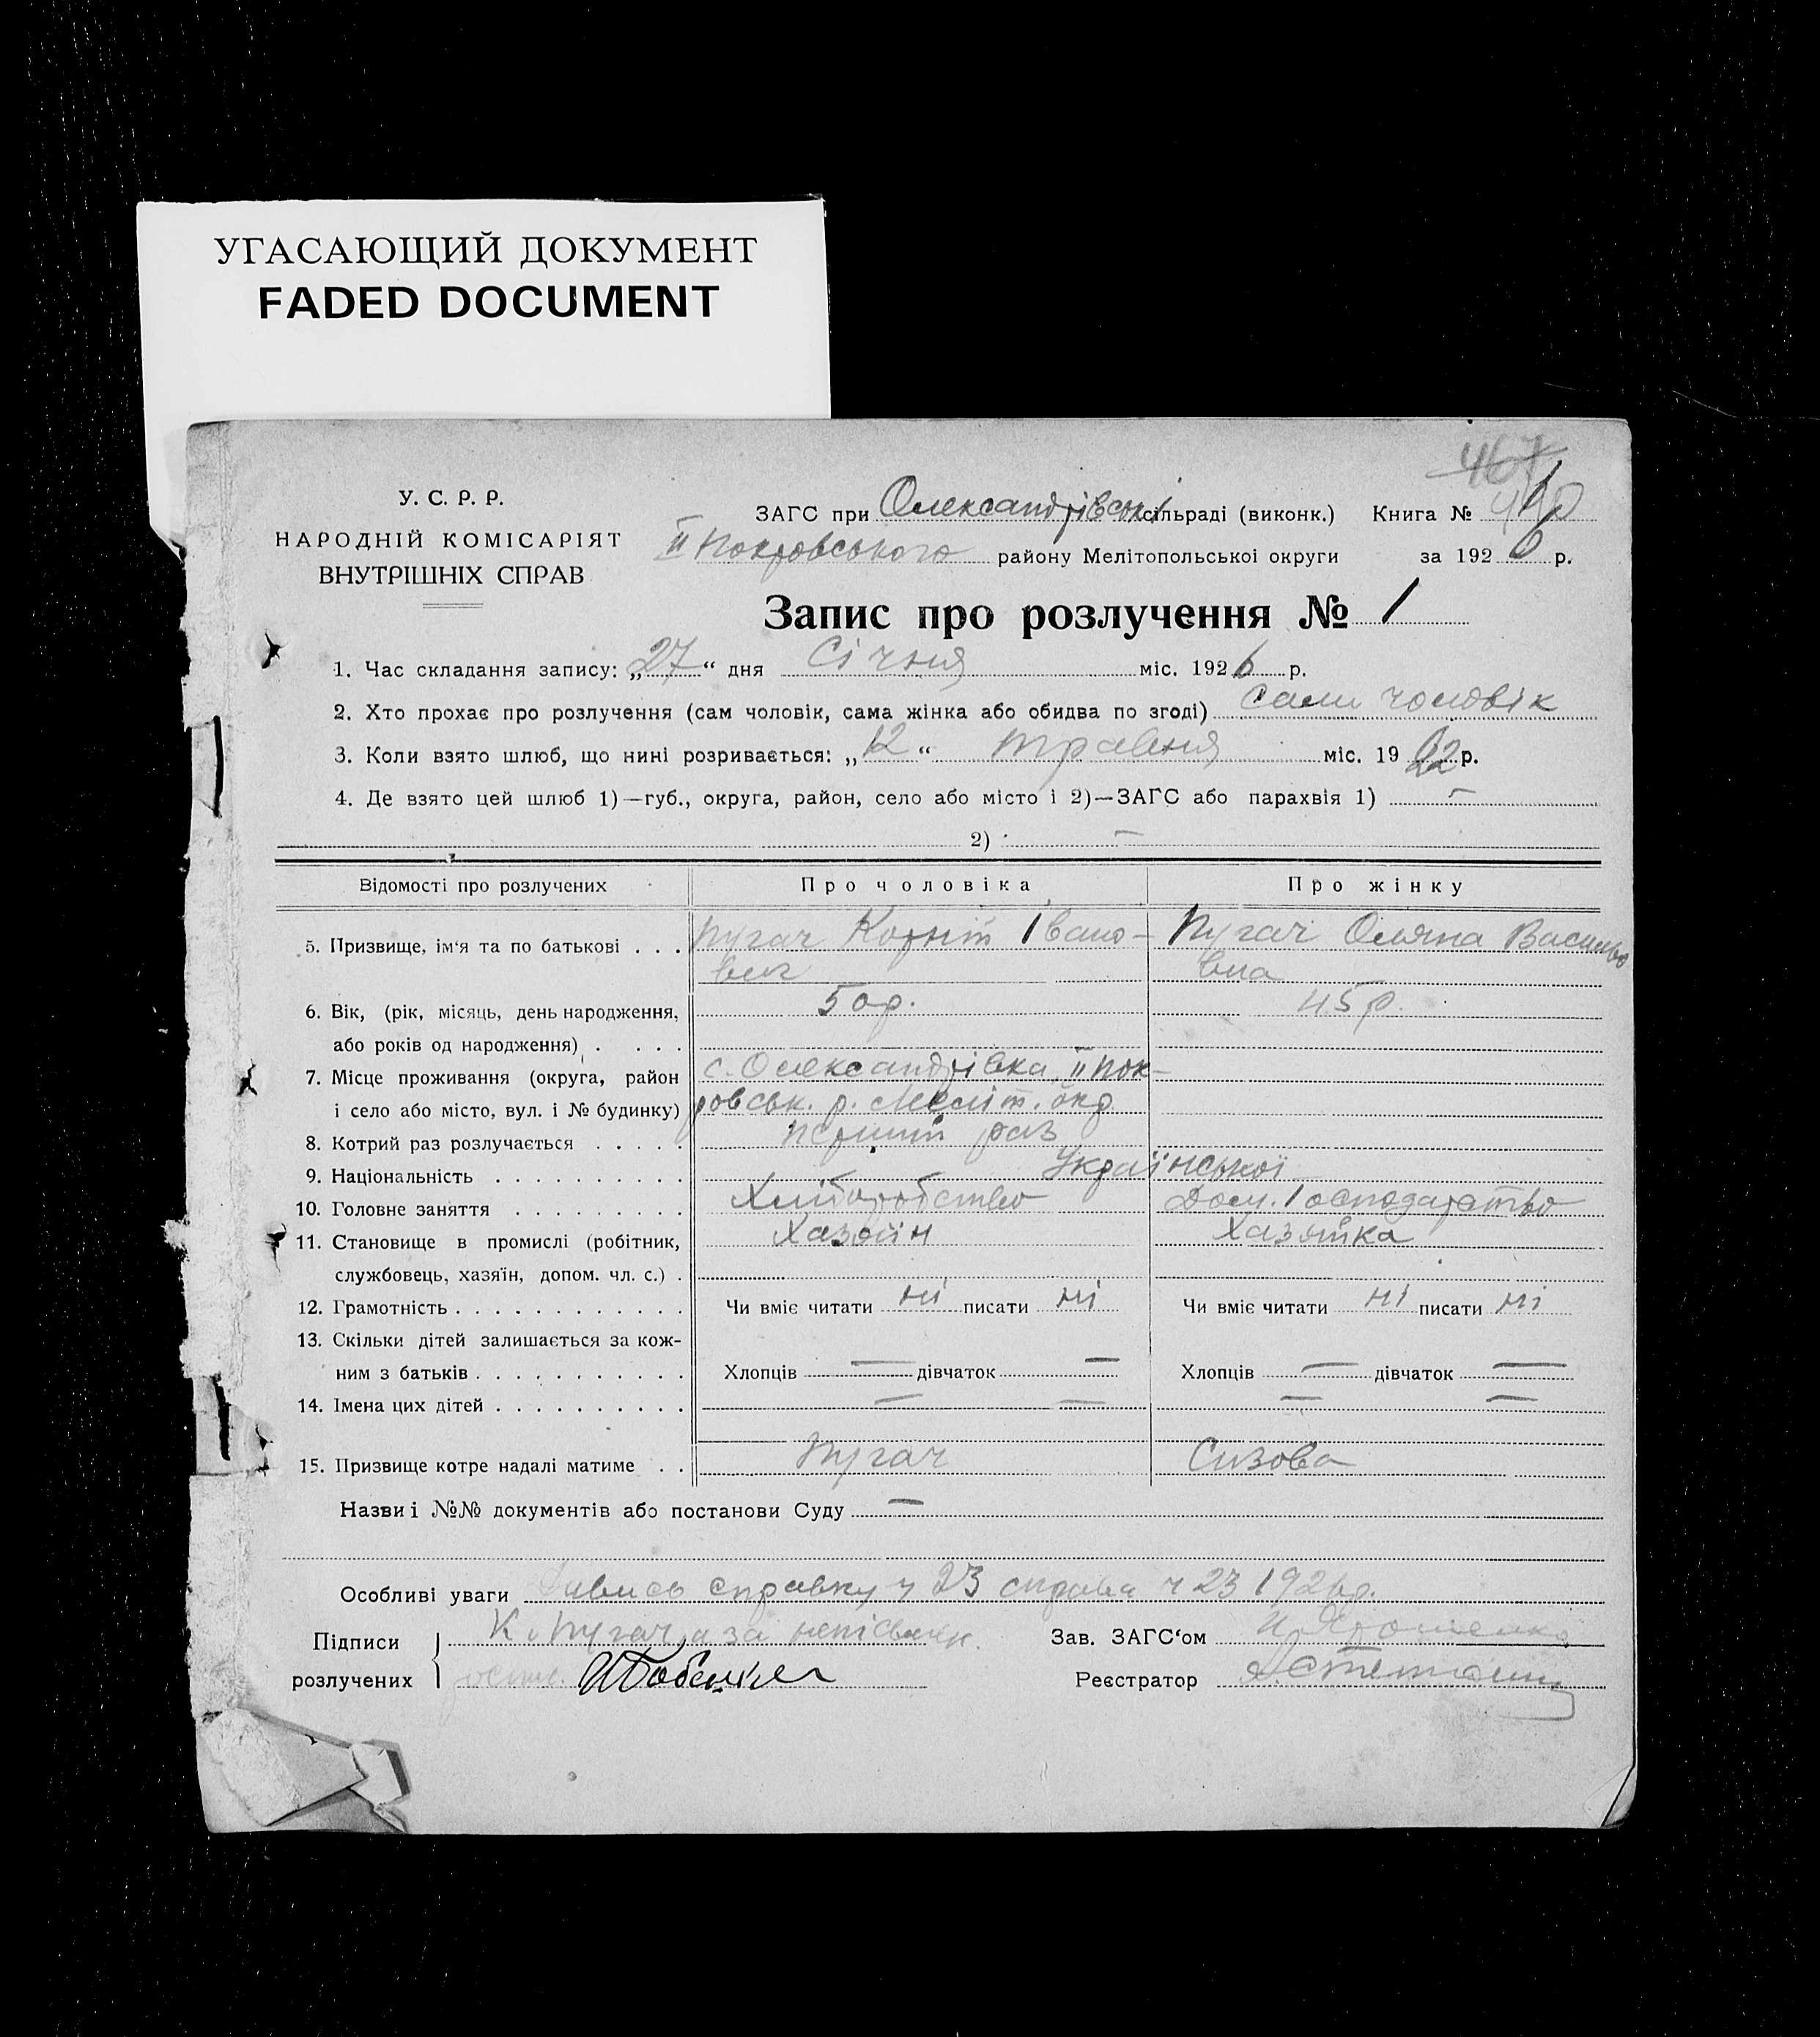 УГАСАЮЩИЙ ДОКУМЕНТ
FADED DOCUMENT
467
У. С. Р. Р.
НАРОДНІЙ КОМІСАРІЯТ
ВНУТРІШНІХ СПРАВ
ЗАГС при Олександрівськ. сільраді (виконк.) Книга №
ІІ Покровського району Мелітопольської округи за 1926 р.
Запис про розлучення № 1
1. Час складання запису: „27“ дня Січня міс. 1926 р.
2. Хто прохає про розлучення (сам чоловік, сама жінка або обидва по згоді) сам чоловік
3. Коли взято шлюб, що нині розривається: „12“ травня міс. 1922 р.
4. Де взято цей шлюб 1)—губ., округа, район, село або місто і 2)—ЗАГС або парахвія 1) —
2) —
Відомості про розлучених Про чоловіка Про жінку
5. Призвище, ім‘я та по батькові . . . Пугач Корній Івано- Пугач Оляна Василье
вич вна
6. Вік, (рік, місяць, день народження, 50 р. 45 р.
або років од народження) . . . .
7. Місце проживання (округа, район с. Олександрівка ІІ Пок-
і село або місто, вул. і № будинку) ровськ. р. Меліт. окр
8. Котрий раз розлучається . . . . . перший раз
9. Національність . . . . . . . . . . Української
10. Головне заняття . . . . . . . . . Хліборобство Дом. Господарство
11. Становище в промислі (робітник, Хазяїн Хазяйка
службовець, хазяїн, допом. чл. с.) .
12. Грамотність . . . . . . . . . . . . Чи вміє читати ні писати ні Чи вміє читати ні писати ні
13. Скільки дітей залишається за кож-
ним з батьків . . . . . . . . . . . Хлопців — дівчаток — Хлопців — дівчаток —
14. Імена цих дітей . . . . . . . . . . — — — —
15. Призвище котре надалі матиме . . Пугач Сизова
Назви і №№ документів або постанови Суду —
Особливі уваги справку у 23 справа ч 23 1926 р.
Підписи К. Пугач, а за неписьмен.
розлучених
Зав. ЗАГС‘ом
Реєстратор